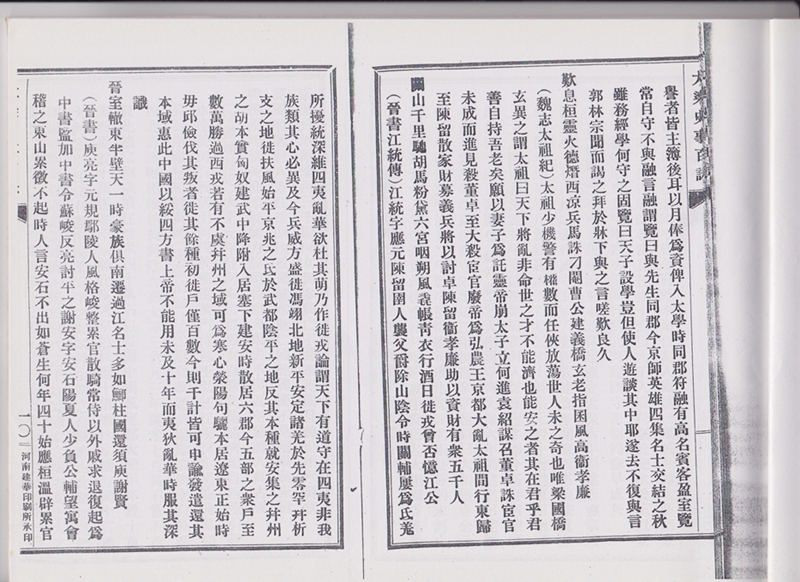 譽者皆主簿後耳以月俸爲資俾入太學時同郡符融有高名賓客盈室覽
常自守不與融言融謂覽曰與先生同郡今京師英雄四集名士交結之秋
雖務經學何守之固覽曰天子設學豈但使人遊談其中耶遂去不復與言
郭林宗聞而謁之拜於牀下與之言嗟歎良久
歎息桓靈火德熸西涼兵馬誅刁閹曹公建義橋玄老指困風高衞孝廉
(魏志太祖紀)太祖少機警有權數而任俠放蕩世人未之奇也唯梁國橋
玄異之謂太祖曰天下將亂非命世之才不能濟也能安之者其在君乎君
善自持吾老矣願以妻子爲託靈帝崩太子立何進袁紹謀召董卓誅宦官
未成而進見殺董卓至大殺宦官廢帝爲弘農王京都大亂太祖間行東歸
至陳留散家財募義兵將以討卓陳留衞孝廉助以資財有衆五千人
關山千里驕胡馬粉黛六宮咽朔風毳帳靑衣行酒日徙戎曾否憶江公
(晉書江統傳)江統字應元陳留圉人襲父爵除山陰令時關輔屢爲氐羌
所擾統深維四夷亂華欲杜其萌乃作徙戎論謂天下有道守在四夷非我
族類其心必異及今兵威方盛徙馮翊北地新平安定諸羌於先零罕幵析
支之地徙扶風始平京兆之氐於武都陰平之地反其本種就安集之幷州
之胡本實匈奴建武中降附入居塞下建安時散居六郡今五部之衆戶至
數萬勝過西戎若有不虞幷州之域可爲寒心滎陽句驪本居遼東正始時
毋邱儉伐其叛者徙其餘種初徙戶僅百數今則千計皆可申諭發遣還其
本域惠此中國以綏四方書上帝不能用未及十年而夷狄亂華時服其深
識
晉室轍東半壁天一時豪族俱南遷過江名士多如鯽柱國還須庾謝賢
(晉書)庾亮字元規鄢陵人風格峻整累官散騎常侍以外戚求退復起爲
中書監加中書令蘇峻反亮討平之謝安字安石陽夏人少負公輔望寓會
稽之東山累徵不起時人言安石不出如蒼生何年四十始應桓溫辟累官
一〇
河南建華印刷所承印